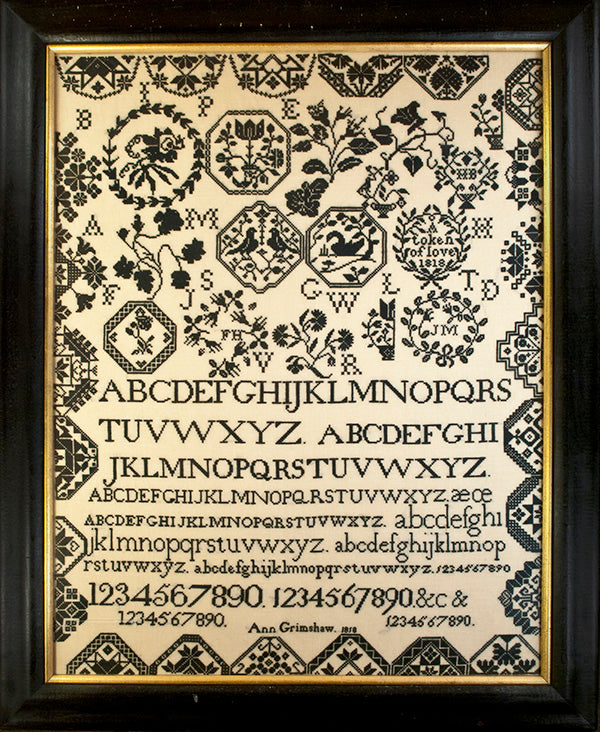 I
B P E
HB
A M H
A
token
of love
1818
F J S C W L T D
FH JM
V R
ABCDEFGHIJKLMNOPQRS
TUVWXYZ. ABCDEFGHI
JKLMNOPQRSTUVWXYZ.
ABCDEFGHIJKLMNOPQRSTUVWXYZ.æœ
ABCDEFGHIJKLMNOPQRSTUVWXYZ. abcdefghi
jklmnopqrstuvwxyz. abcdefghijklmnop
rstuvwxyz. abcdefghijklmnopqrstuvwxyz.1234567890
1234567890. 1234567890.&c &
1234567890. 1234567890.
Ann Grimshaw. 1818